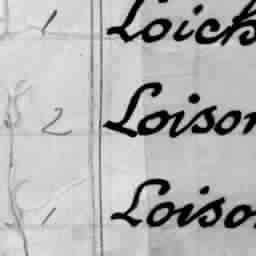 1 Loich
2 Loison
1 Loiso